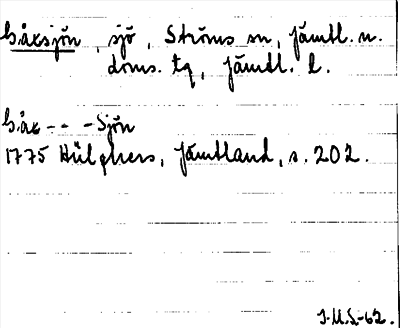 Gåxsjön, sjö, Ströms sn, Jämtl. n.
doms. tg, Jämtl. l.
Gåx - - - Sjön
1775 Hülphers, Jämtland, s. 202.
J.M.S-62.